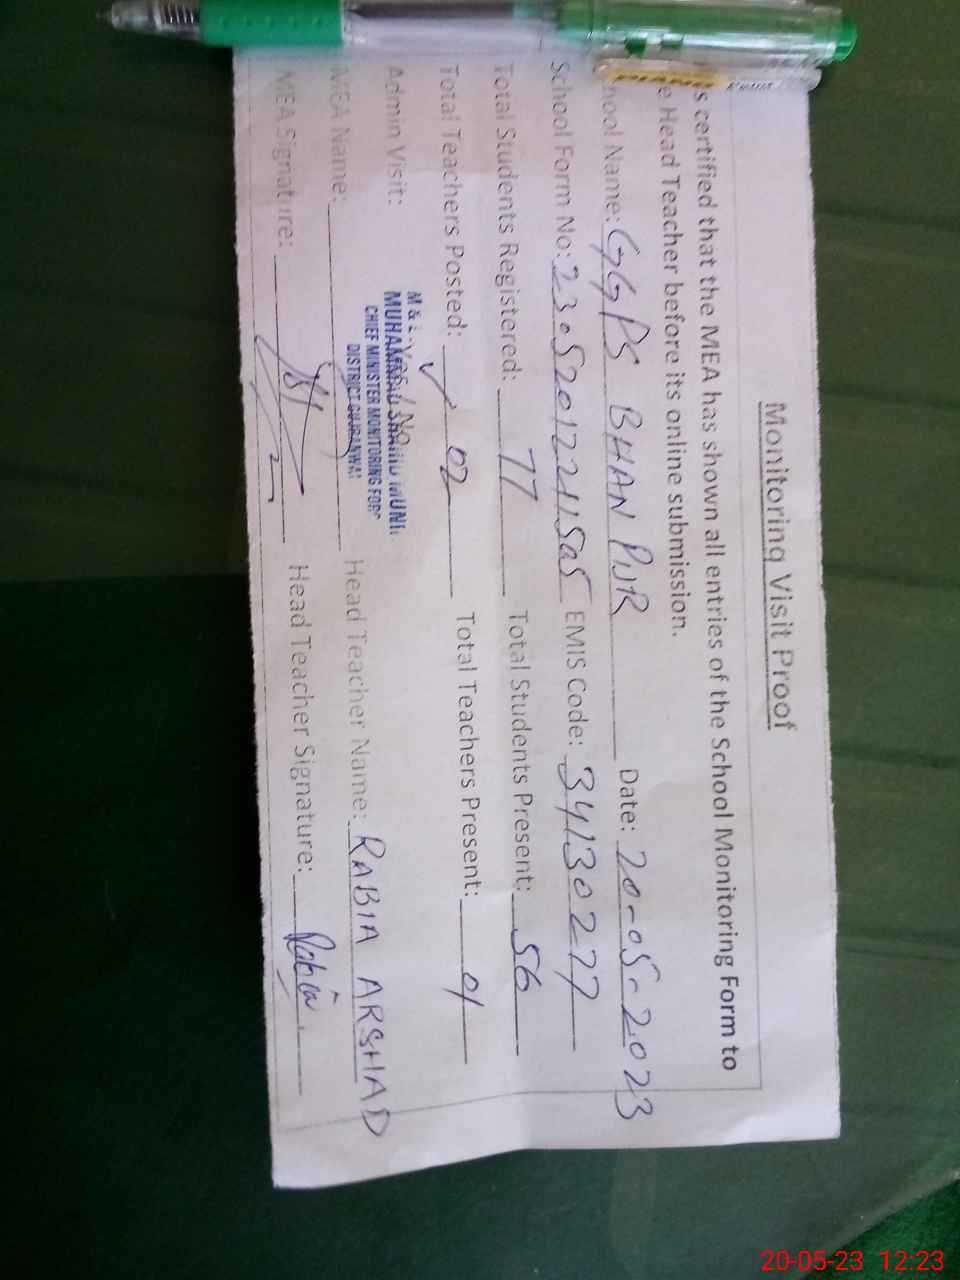 Monitoring Visit Proof
is certified that the MEA has shown all entries of the School Monitoring Form to
e Head Teacher before its online submission.
hool Name: GGPS BHAN PUR Date: 20-05-2023
School Form No: EMIS Code: 34130277
Total Students Registered: 77 Total Students Present: 56
Total Teachers Posted: 02 Total Teachers Present: 01
Admin Visit: No
M & E
MUHAMMAD SHAHID MUNI
CHIEF MINISTER MONITORING FORC
DISTRICT GUJRANWAL
MEA Name: Head Teacher Name: RABIA ARSHAD
MEA Signature: Head Teacher Signature: Rabia
20-05-23 12:23